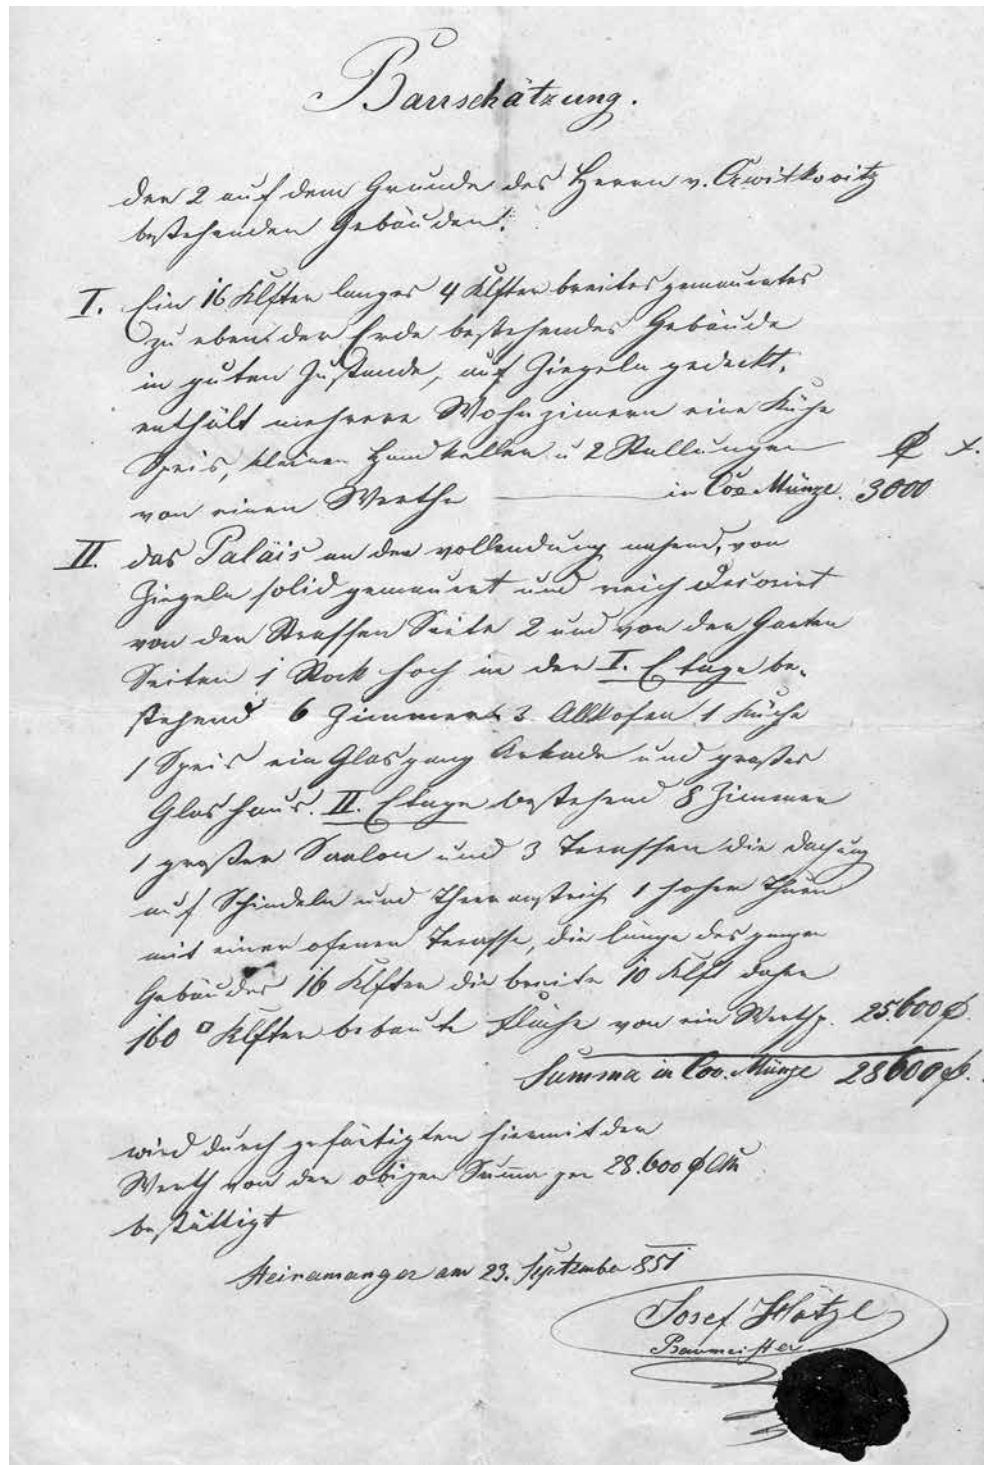 Bauschätzung.
der 2 auf dem Grunde des Herrn v.
bestehenden Gebäuden:
I. Ein 16 Klfter langes 4 Klfter breites gemauertes
zu ebener der Erde bestehendes Gebäude
in guten Zustande, auf Ziegeln gedeckt,
enthält mehrere Wohnzimern eine Küche
Speis, kleinen Handkeller u 2 Stallungen f x.
von einen Werthe in Cov. Münze. 3000
II. das Palais an der vollendung nahend, von
Ziegeln solid gemauert und reich decorirt
von der Strassen Seite 2 und von der Garten
Seiten 1 Stock hoch in der I. Etage be-
stehend 6 Zimmer 3 Allkofen 1 Küche
1 Speis ein Glasgang Arkade und großes
Glashaus. II. Etage bestehend 8 Zimmer
1 großer Saalon und 3 Terassen die dachung
auf Schindeln und Theeranstrich 1 hoher Thurn
mit einer ofenen Terasse, die länge des ganzen
Gebäudes 16 Klfter die breite 10 Klft daher
160 □ Klfter bebaute Fläche von ein Werth p. 25.600 f.
Summa in Cov. Münze 28600 f.
wird durch gefärtigten hiermit der
Werth von der obigen Summa per 28.600 f CM
bestättigt
Steinamanger am 23. September 851
Josef
Baumeister